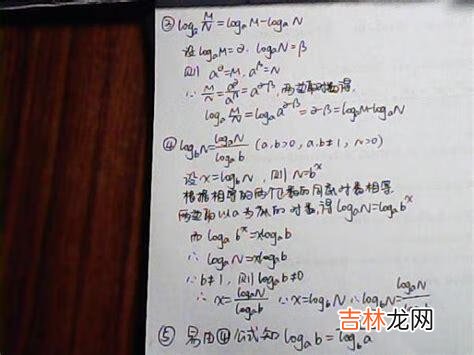 ③ logₐ M/N = logₐM - logₐN
设 logₐM=∂. logₐN=β
则 a^∂=M, a^β=N
∵ M/N = a^∂/a^β = a^(∂-β), 两边取对数得,
logₐ M/N = logₐ a^(∂-β) = ∂-β = logₐM-logₐN
④ log_b N = logₐN/logₐb (a.b>0, a.b≠1, N>0)
设 x=log_b N, 则 N=b^x
根据相等的两个正数的同底对数相等
两边取以a为底的对数,得 logₐN=logₐb^x
而 logₐb^x = xlogₐb
∴ logₐN=xlogₐb
∵ b≠1, 则 logₐb≠0
∴ x= logₐN/logₐb ∵ x=log_b N ∴ log_b N= logₐN/
⑤ 易由④公式知 logₐb = log_b a
吉林龙网